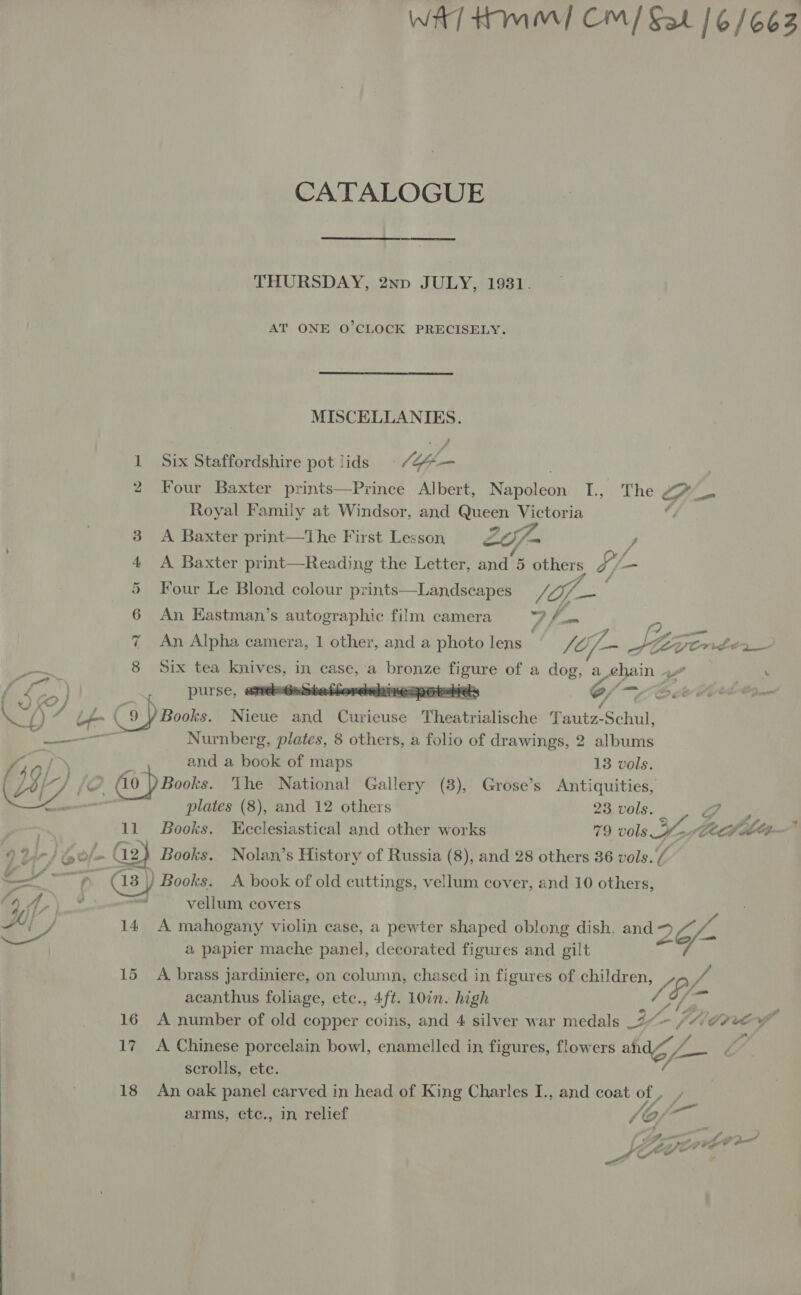 WA/HMM/CM/Sal/6/663
CATALOGUE
THURSDAY, 2ND JULY, 1931.
AT ONE O'CLOCK PRECISELY.
MISCELLANIES.
1 Six Staffordshire pot lids
2 Four Baxter prints—Prince Albert, Napoleon I., The
Royal Family at Windsor, and Queen Victoria
3 A Baxter print—The First Lesson 20/-
4 A Baxter print—Reading the Letter, and 5 others
5 Four Le Blond colour prints—Landscapes 10/-
6 An Eastman's autographic film camera
7 An Alpha camera, 1 other, and a photo lens 10/-
8 Six tea knives, in case, a bronze figure of a dog, a chain
purse,
9 Books. Nieue and Curieuse Theatrialische Tautz-Schul,
Nurnberg, plates, 8 others, a folio of drawings, 2 albums
and a book of maps 13 vols.
10 Books. The National Gallery (3), Grose's Antiquities,
plates (8), and 12 others 23 vols.
11 Books. Ecclesiastical and other works 79 vols.
12 Books. Nolan's History of Russia (8), and 28 others 36 vols.
13 Books. A book of old cuttings, vellum cover, and 10 others,
vellum covers
14 A mahogany violin case, a pewter shaped oblong dish, and 26/-
a papier mache panel, decorated figures and gilt
15 A brass jardiniere, on column, chased in figures of children,
acanthus foliage, etc., 4ft. 10in. high
16 A number of old copper coins, and 4 silver war medals
17 A Chinese porcelain bowl, enamelled in figures, flowers and
scrolls, etc.
18 An oak panel carved in head of King Charles I., and coat of
arms, etc., in relief